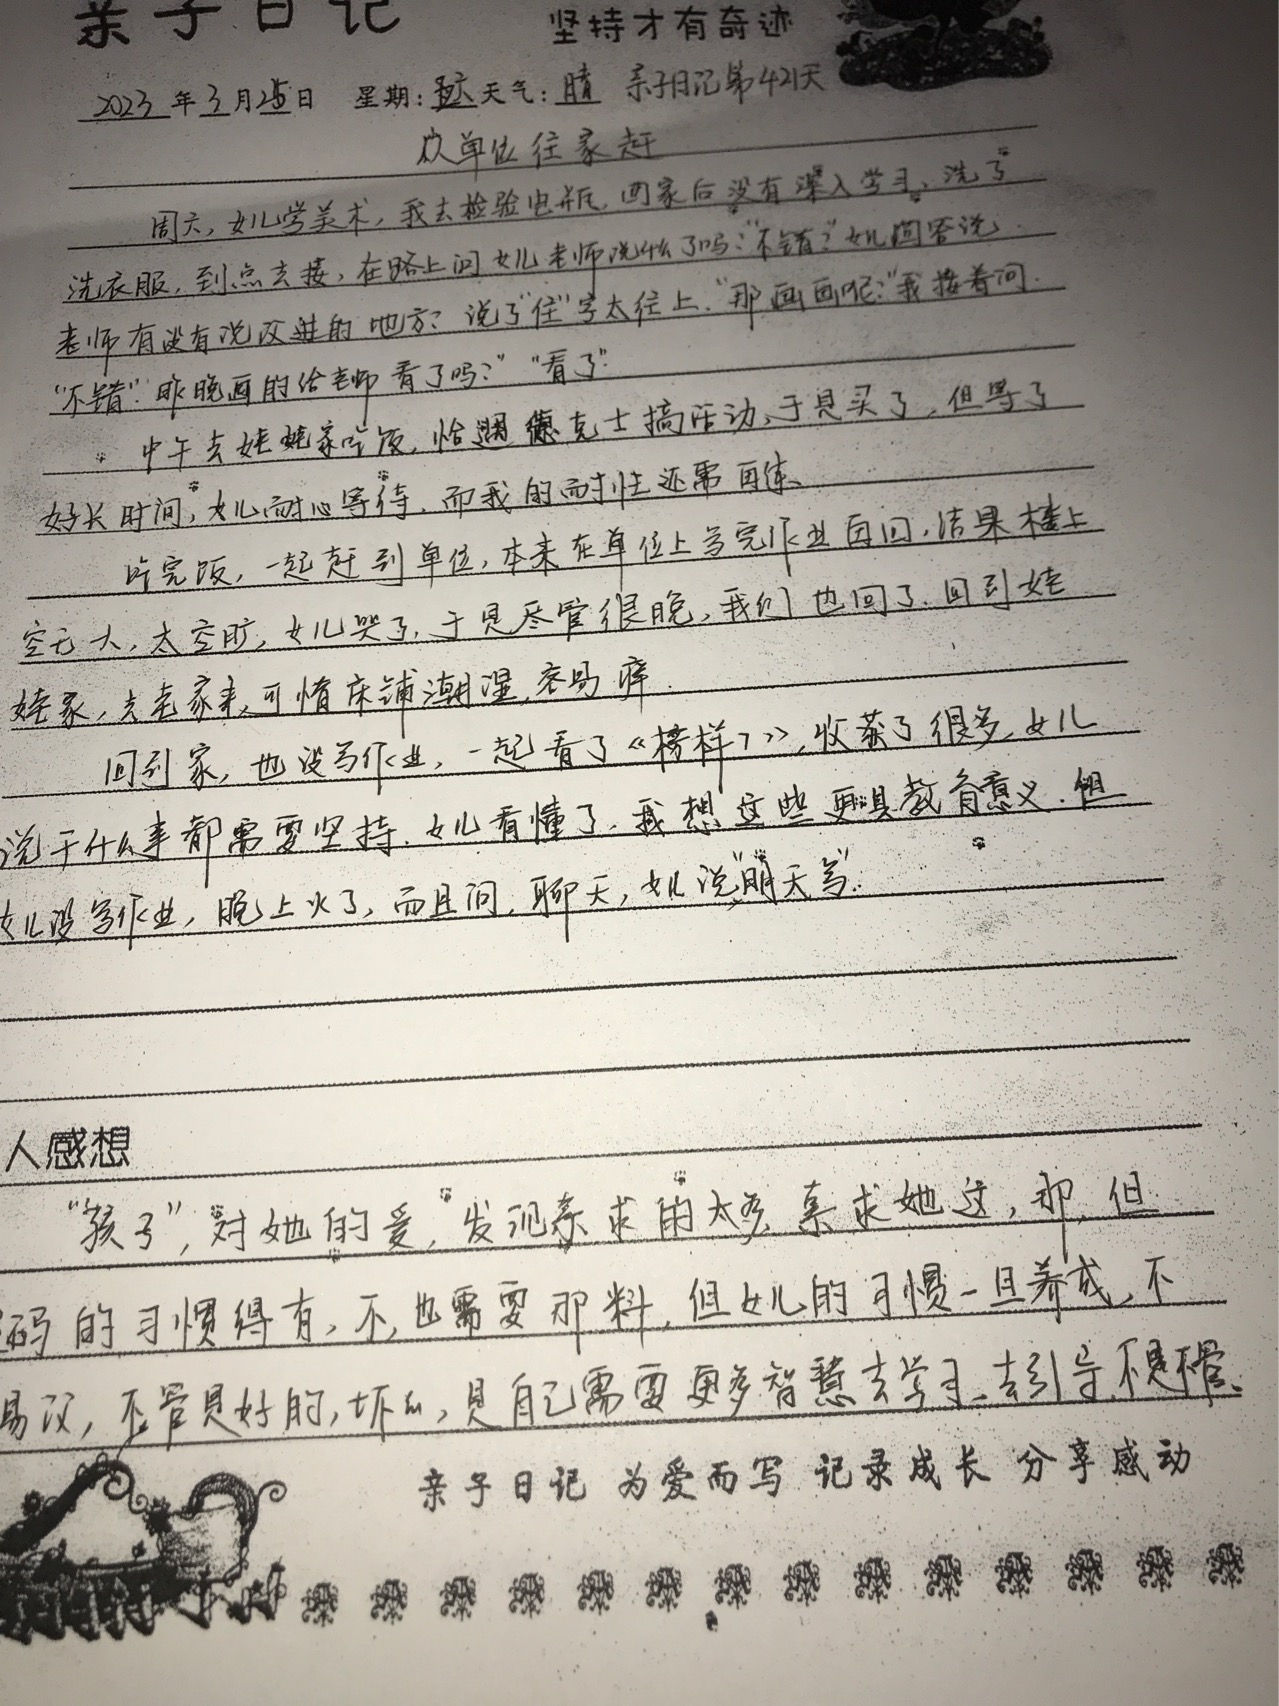 亲子日记 坚持才有奇迹
2023年3月25日 星期:六 天气:晴 亲子日记第421天
从单位往家赶
周六,女儿学美术,我去检验电瓶,回家后没有深入学习,洗了
洗衣服,到点去接,在路上问女儿老师说什么了吗?"不错?"女儿回答说.
老师有没有说改进的地方?说了"住"字太往上."那画画呢?"我接着问.
"不错".昨晚画的给老师看了吗?""看了"
中午去姥姥家吃饭,恰遇德克士搞活动,于是买了,但等了
好长时间,女儿耐心等待,而我的耐性还需再练、
吃完饭,一起赶到单位,本来在单位上写完作业再回,结果楼上
空无人,太空旷,女儿哭了,于是尽管很晚,我们也回了.回到姥
姥家,去老家来,可惜床铺潮湿,容易痒.
回到家,也没写作业,一起看了《榜样7》,收获了很多,女儿
说干什么事都需要坚持.女儿看懂了.我想这些更具教育意义.但
女儿没写作业,晚上火了,而且问,聊天,女儿说,"明天写".
人感想
"孩子",对她的爱,发现索求的太多,索求她这,那,但
码的习惯得有,不,也需要那料,但女儿的习惯一旦养成,不
易改,不管是好的,坏的,是自己需要更多智慧去学习、去引导,不是不管、
亲子日记 为爱而写 记录成长 分享感动